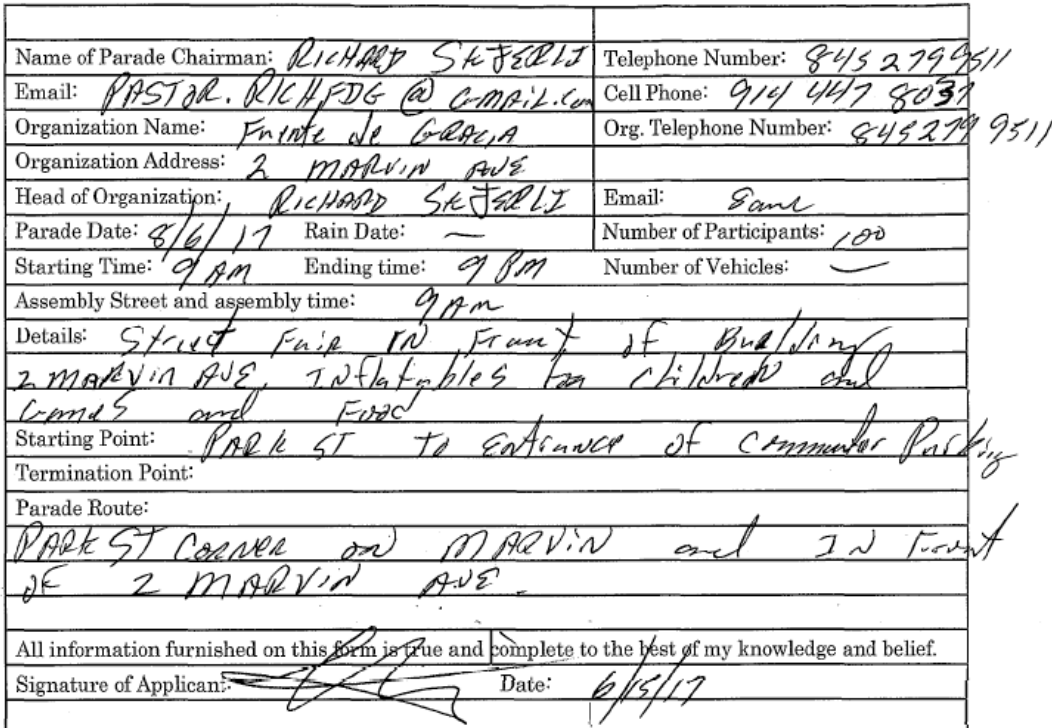 Name of Parade Chairman: RICHARD SKJERLI Telephone Number: 845 279 9511
Email: PASTOR.RICHFDG@GMAIL.Com Cell Phone: 914 447 8037
Organization Name: Fuente de GRACIA Org. Telephone Number: 845 279 9511
Organization Address: 2 MARVIN AVE
Head of Organization: RICHARD SKJERLI Email: Same
Parade Date: 8/6/17 Rain Date: — Number of Participants: 100
Starting Time: 9 AM Ending time: 9 PM Number of Vehicles: —
Assembly Street and assembly time: 9 Am
Details: Street Fair IN Front of Building
2 MARVIN AVE, INflatables for children and
Games and Food
Starting Point: PARK ST To Entrance of Commuter Parking
Termination Point:
Parade Route:
PARK ST CORNER on MARVIN and IN Front
OF 2 MARVIN AVE.
All information furnished on this form is true and complete to the best of my knowledge and belief.
Signature of Applicant: Date: 6/15/17